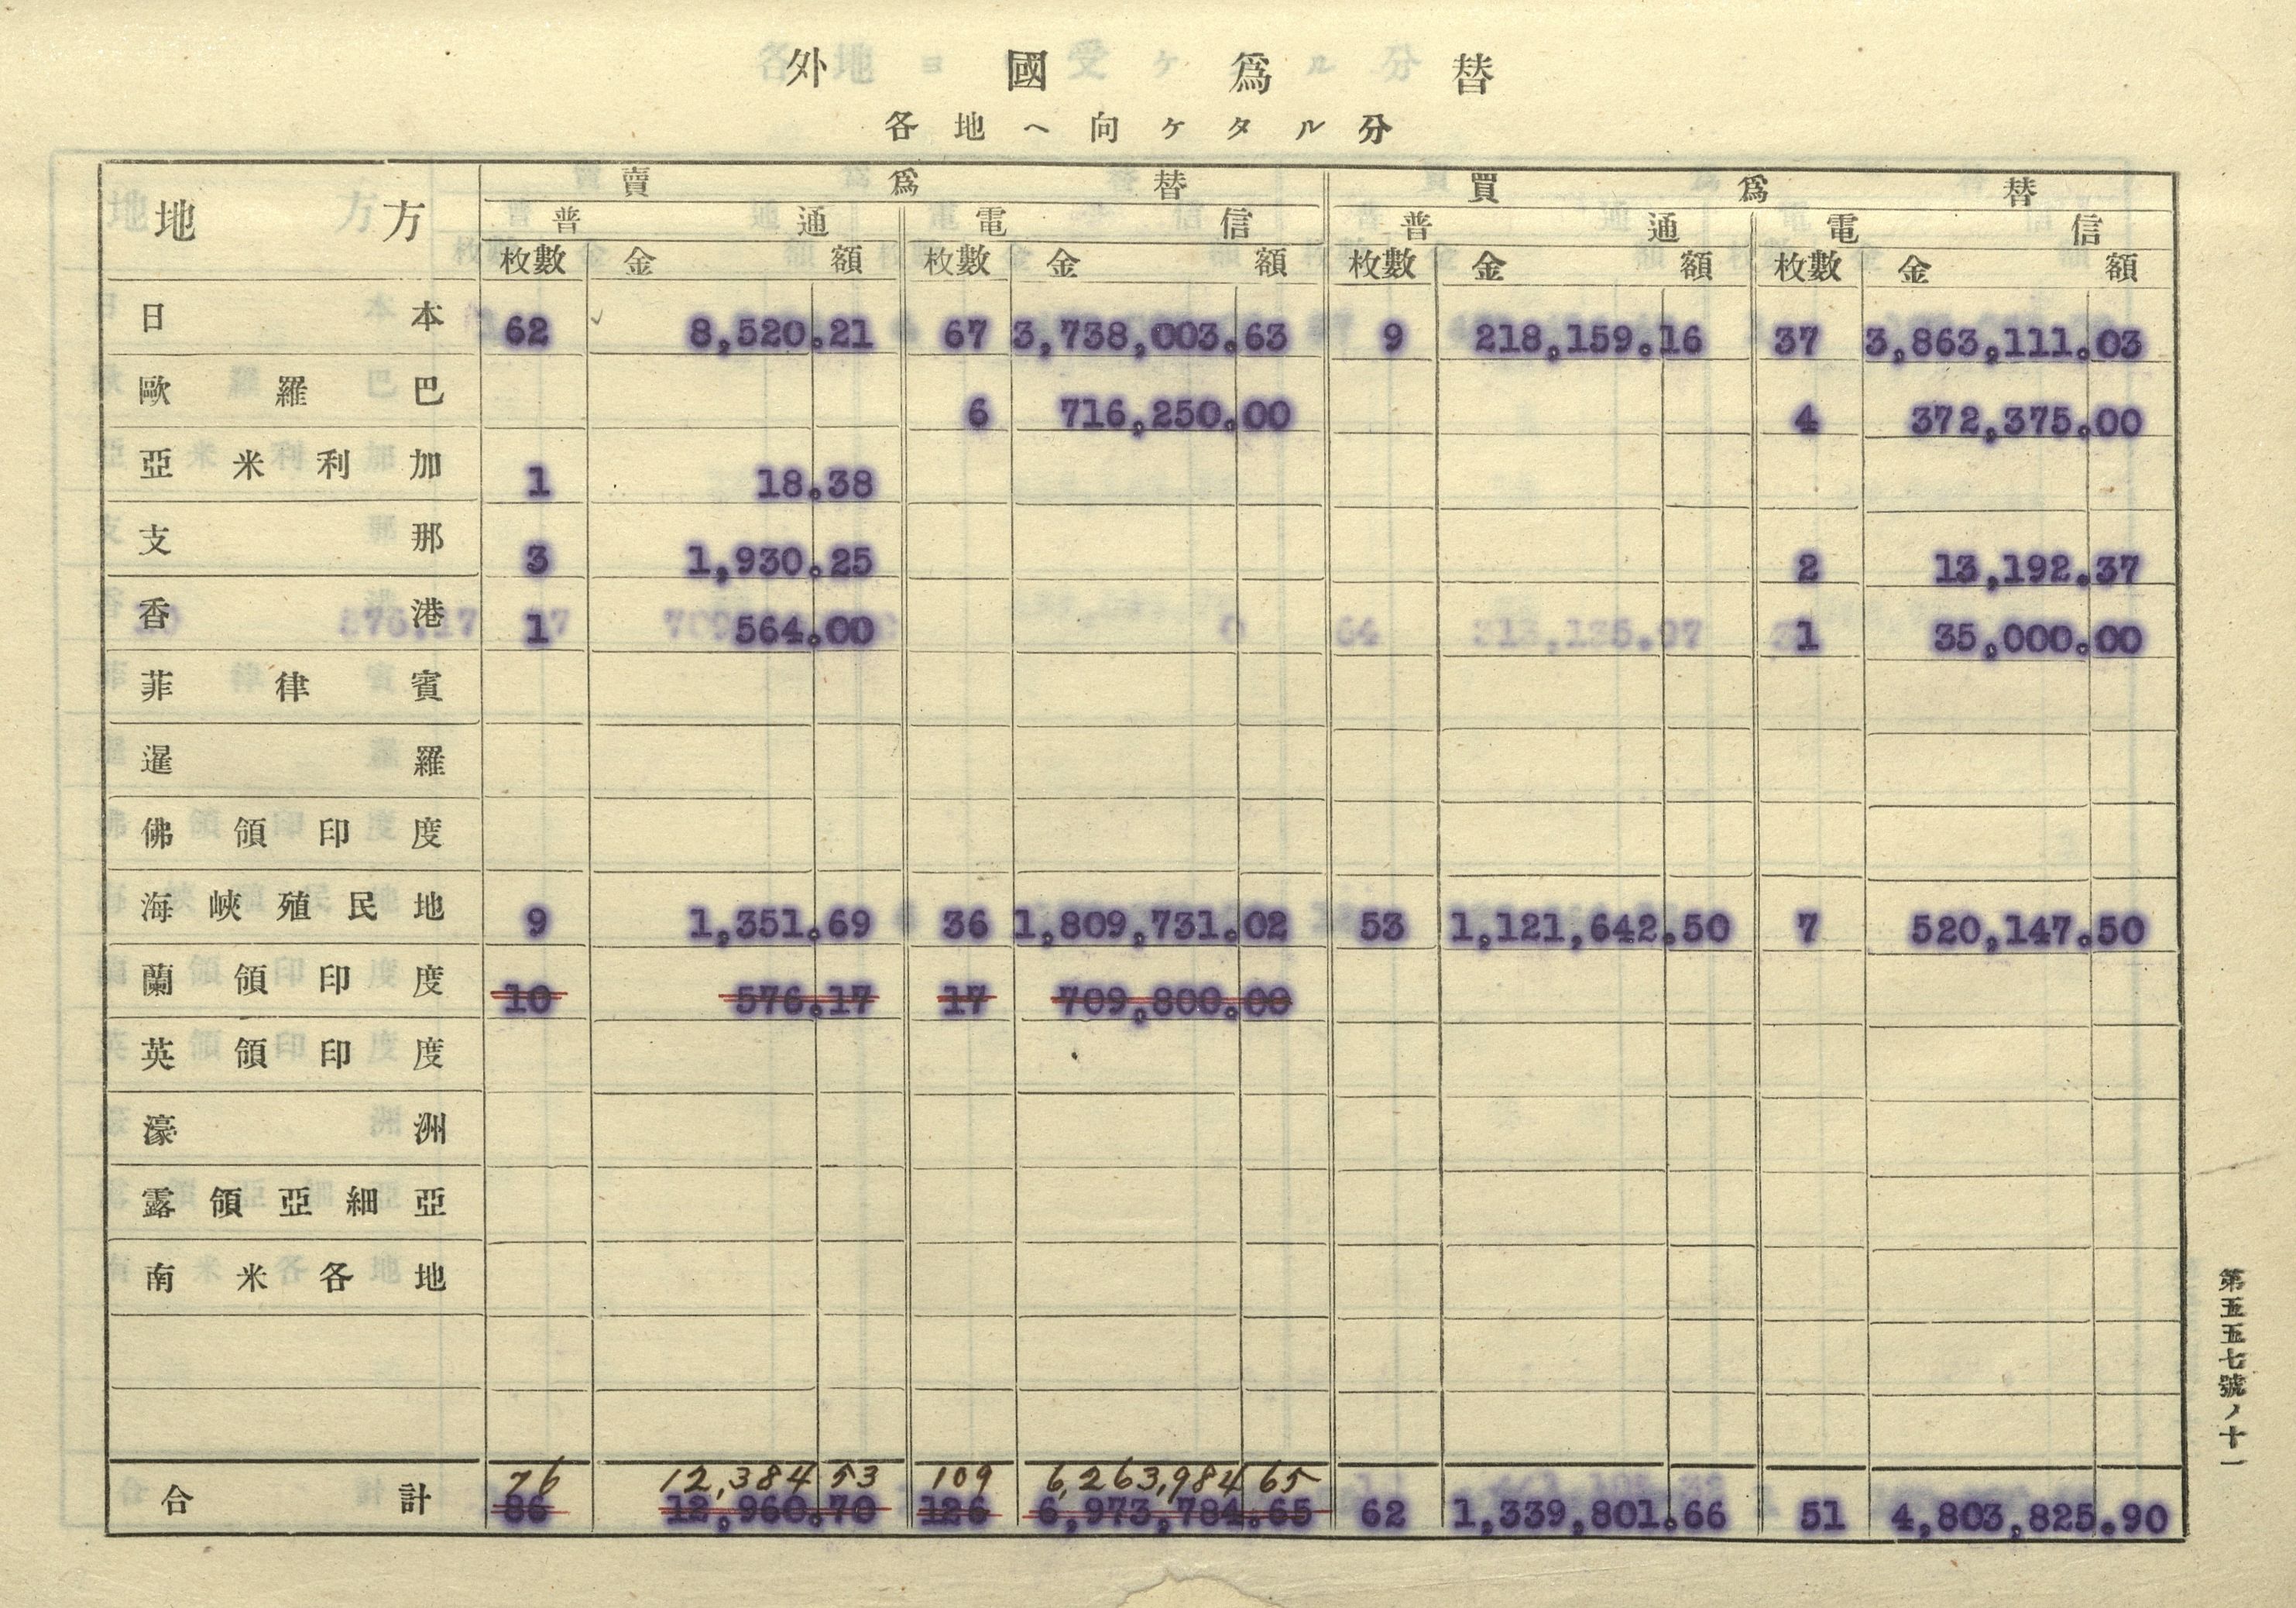 外國爲替
各地ヘ向ケタル分
地方 賣爲替 買爲替
普通 電信 普通 電信
枚數 金額 枚數 金額 枚數 金額 枚數 金額
日本 62 8,520.21 67 3,738,003.63 9 218,159.16 37 3,863,111.03
歐羅巴 6 716,250.00 4 372,375.00
亞米利加 1 18.38
支那 3 1,930.25 2 13,192.37
香港 1 564.00 1 35,000.00
菲律賓
暹羅
佛領印度
海峽殖民地 9 1,351.69 36 1,809,731.02 53 1,121,642.50 7 520,147.50
蘭領印度 10 576.17 17 709,800.00
英領印度
濠洲
露領亞細亞
南米各地
76 12,384 53 109 6,263,984 65
合計 86 12,960.70 126 6,973,784.65 62 1,339,801.66 51 4,803,825.90
第五五七號ノ十一